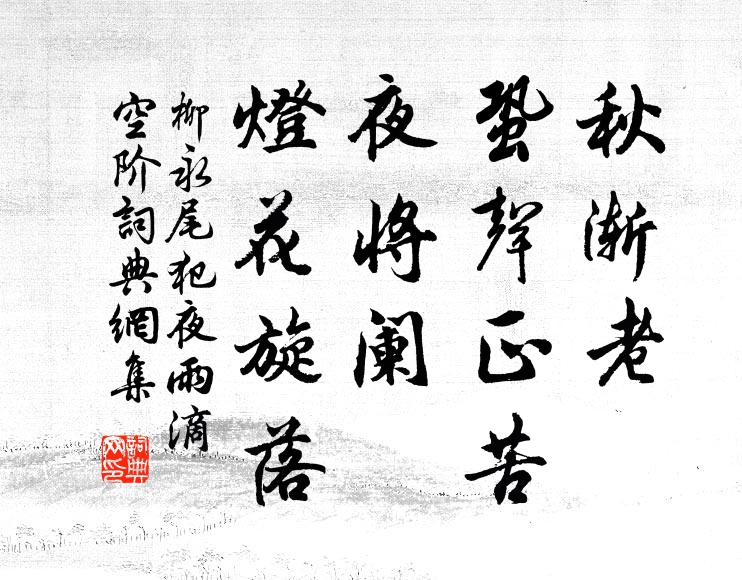 秋渐老
蛩聲正苦
夜将阑
燈花旋落
柳永尾犯夜雨滴
空阶詞典網集
詞典网印